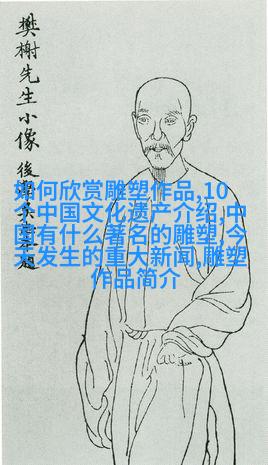 樊榭先生小像
後
如何欣赏雕塑作品,10
个中国文化遗产介绍,中
国有什么著名的雕塑,今
天发生的重大新闻,雕塑
作品简介